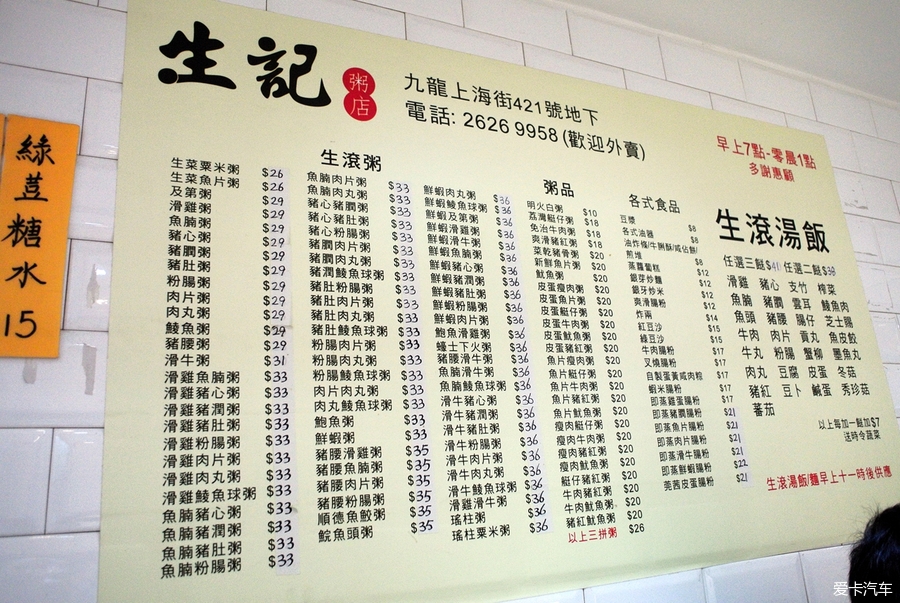 綠荳糖水
15
生記
粥店
九龍上海街421號地下
電話: 2626 9958 (歡迎外賣)
早上7點-零晨1點
多謝惠顧
生滾粥
生菜粟米粥 $26
生菜魚片粥 $26
及第粥 $29
滑雞粥 $29
魚腩粥 $29
豬心粥 $29
豬膶粥 $29
豬肚粥 $29
粉腸粥 $29
肉片粥 $29
肉丸粥 $29
鯪魚粥 $29
豬腰粥 $29
滑牛粥 $31
滑雞魚腩粥 $33
滑雞豬心粥 $33
滑雞豬膶粥 $33
滑雞豬肚粥 $33
滑雞粉腸粥 $33
滑雞肉片粥 $33
滑雞肉丸粥 $33
滑雞鯪魚球粥 $33
魚腩豬心粥 $33
魚腩豬膶粥 $33
魚腩豬肚粥 $33
魚腩粉腸粥 $33
魚腩肉片粥 $33
魚腩肉丸粥 $33
豬心豬膶粥 $33
豬心豬肚粥 $33
豬心粉腸粥 $33
豬膶肉片粥 $33
豬膶肉丸粥 $33
豬膶鯪魚球粥 $33
豬肚粉腸粥 $33
豬肚肉片粥 $33
豬肚肉丸粥 $33
豬肚鯪魚球粥 $33
粉腸肉片粥 $33
粉腸肉丸粥 $33
粉腸鯪魚球粥 $33
肉片肉丸粥 $33
肉丸鯪魚球粥 $33
鮑魚粥 $33
鮮蝦粥 $33
豬腰滑雞粥 $35
豬腰魚腩粥 $35
豬腰肉片粥 $35
豬腰粉腸粥 $35
順德魚餃粥 $35
鯇魚頭粥 $35
鮮蝦肉丸粥 $36
鮮蝦鯪魚球粥 $36
鮮蝦及第粥 $36
鮮蝦滑雞粥 $36
鮮蝦滑牛粥 $36
鮮蝦魚腩粥 $36
鮮蝦豬心粥 $36
鮮蝦豬膶粥 $36
鮮蝦豬肚粥 $36
鮮蝦粉腸粥 $36
鮮蝦肉片粥 $36
鮑魚滑雞粥 $36
蠔士下火粥 $36
豬腰滑牛粥 $36
魚腩滑牛粥 $36
魚腩鯪魚球粥 $36
滑牛豬心粥 $36
滑牛豬膶粥 $36
滑牛豬肚粥 $36
滑牛粉腸粥 $36
滑牛肉片粥 $36
滑牛肉丸粥 $36
滑牛鯪魚球粥 $36
滑雞滑牛粥 $36
瑤柱粥 $36
瑤柱粟米粥 $36
粥品
明火白粥 $10
荔灣艇仔粥 $18
免治牛肉粥 $18
爽滑豬紅粥 $18
菜乾豬骨粥 $20
新鮮魚片粥 $20
魷魚粥 $20
皮蛋瘦肉粥 $20
皮蛋魚片粥 $20
皮蛋艇仔粥 $20
皮蛋牛肉粥 $20
皮蛋魷魚粥 $20
皮蛋豬紅粥 $20
魚片瘦肉粥 $20
魚片艇仔粥 $20
魚片牛肉粥 $20
魚片豬紅粥 $20
魚片魷魚粥 $20
瘦肉艇仔粥 $20
瘦肉牛肉粥 $20
瘦肉豬紅粥 $20
瘦肉魷魚粥 $20
艇仔豬紅粥 $20
牛肉豬紅粥 $20
牛肉魷魚粥 $20
豬紅魷魚粥 $20
以上三拼粥 $26
各式食品
豆漿 $8
各式油器 $8
油炸條/牛脷酥/咸佔餅/
煎堆 $8
蒸蘿蔔糕 $12
銀芽炒麵 $12
銀芽炒米 $12
爽滑腸粉 $12
炸兩 $14
紅豆沙 $15
綠豆沙 $15
牛肉腸粉 $17
叉燒腸粉 $17
自製蛋黃咸肉粽 $17
蝦米腸粉 $17
即蒸雞蛋腸粉 $17
即蒸豬膶腸粉 $21
即蒸魚片腸粉 $21
即蒸肉片腸粉 $21
即蒸滑牛腸粉 $21
即蒸鮮蝦腸粉 $22
莞茜皮蛋腸粉 $21
生滾湯飯
任選三餸$41 任選二餸
滑雞 豬心 支竹 榨菜
魚腩 豬膶 雲耳 鯪魚肉
魚頭 豬腰 腸仔 芝士腸
牛肉 肉片 貢丸 魚皮餃
牛丸 粉腸 蟹柳 墨魚丸
肉丸 豆腐 皮蛋 冬菇
豬紅 豆卜 鹹蛋 秀珍菇
蕃茄
以上每加一餸加$7
送時令蔬菜
生滾湯飯/麵早上十一時後供應
爱卡汽车